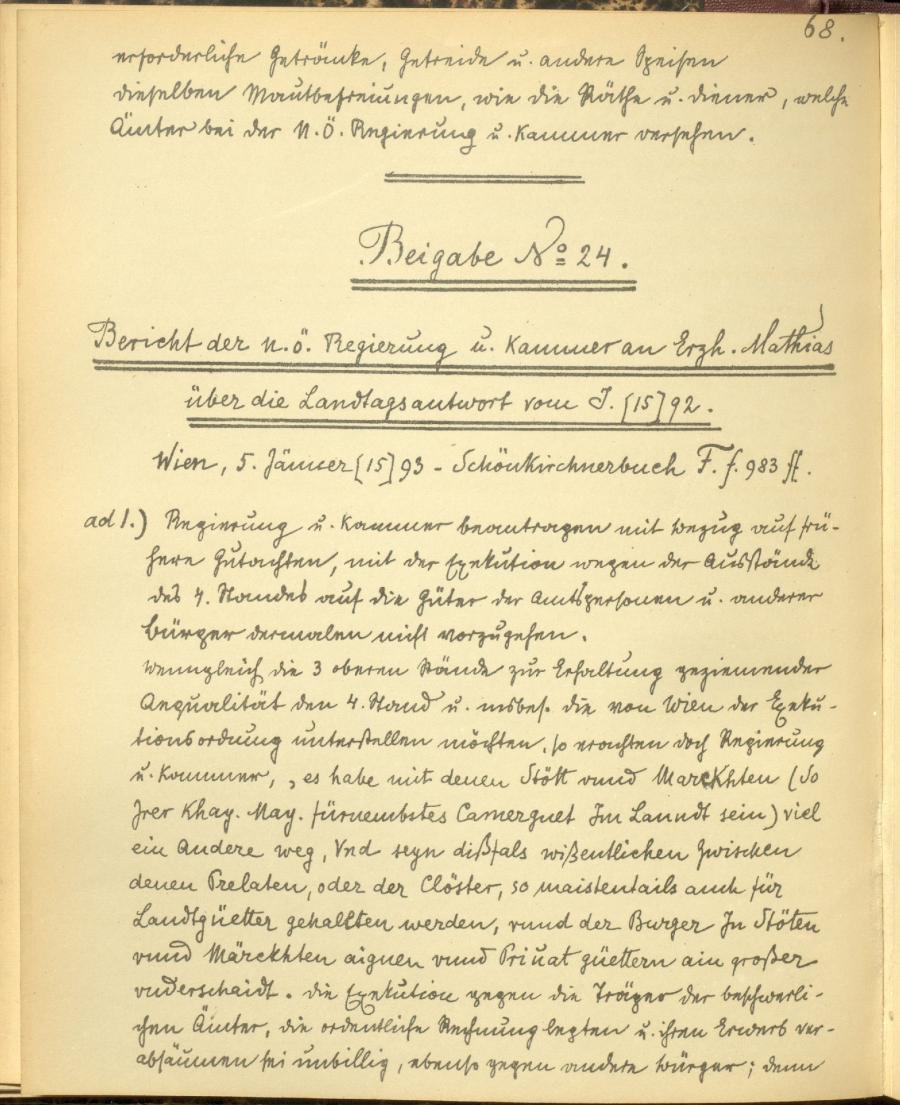 68.
erforderliche Getränke, Getreide u. andere Speisen
dieselben Mautbefreiungen, wie die Räthe u. Diener, welche
Ämter bei der N. Ö. Regierung u. Kammer versehen.
Beigabe No 24.
Bericht der n. ö. Regierung u. Kammer an Erzh. Mathias
über die Landtagsantwort vom J. [15]92.
Wien, 5. Jänner [15]93 - Schönkirchnerbuch F. f. 983 ff.
ad 1.) Regierung u. Kammer beantragen mit Bezug auf frü-
here Gutachten, mit der Exekution wegen der Ausstände
des 4. Standes auf die Güter der Amtspersonen u. anderer
Bürger dermalen nicht vorzugehen.
Wenngleich die 3 oberen Stände zur Erhaltung geziemender
Aequalität den 4. Stand u. insbes. die von Wien der Exeku-
tionsordnung unterstellen möchten, so erachten doch Regierung
u. Kammer, „es habe mit denen Stött vnnd Marckhten (So
Irer Khay. May. fürnembstes Camerguet Im Lanndt sein) viel
ein Andere weg, Vnd seyn dißfals wißentlichen Zwischen
denen Prelaten, oder der Clöster, so maistentails auch für
Landtgüetter gehallten werden, vnnd der Burger In Stöten
vnnd Märckhten aignen vnnd Priuat güettern ain großer
vnderschaidt. Die Exekution gegen die Träger der beschwerli-
chen Ämter, die ordentliche Rechnung legten u. ihren Erwerb ver-
absäumen sei unbillig, ebenso gegen andere Bürger; denn